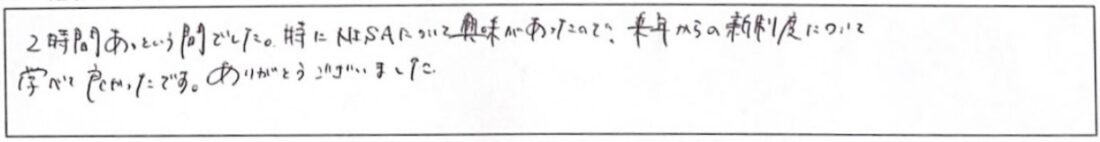 2時間あっという間でした。特にNISAについて興味があったので、来年からの新制度について
学べて良かったです。ありがとうございました。